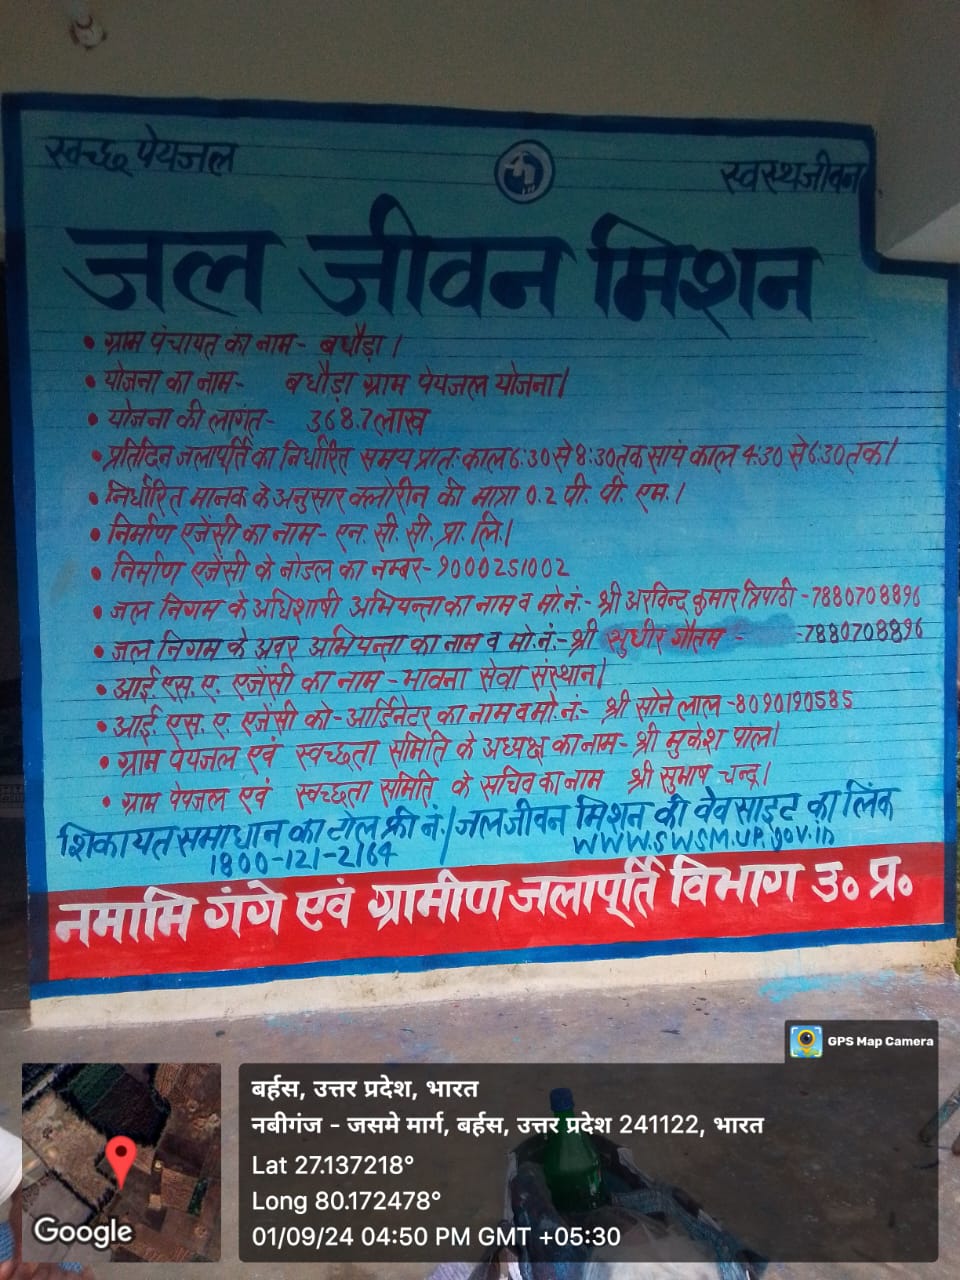 स्वच्छ पेयजल
स्वस्थ जीवन
जल जीवन मिशन
• ग्राम पंचायत का नाम - बघौड़ा ।
• योजना का नाम - बघौड़ा ग्राम पेयजल योजना।
• योजना की लागत - 368.7 लाख
• प्रतिदिन जलापूर्ति का निर्धारित समय प्रातः काल 6:30 से 8:30 तक सायं काल 4:30 से 6:30 तक।
• निर्धारित मानक के अनुसार क्लोरीन की मात्रा 0.2 पी. पी. एम.।
• निर्माण एजेंसी का नाम - एन. सी. सी. प्रा. लि.।
• निर्माण एजेंसी के नोडल का नम्बर - 9000251002
• जल निगम के अधिशाषी अभियन्ता का नाम व मो.नं. - श्री अरविन्द कुमार त्रिपाठी - 7880708896
• जल निगम के अवर अभियन्ता का नाम व मो.नं. - श्री सुधीर गौतम - -7880708896
• आई. एस. ए. एजेंसी का नाम - भावना सेवा संस्थान।
• आई. एस. ए. एजेंसी को-आर्डिनेटर का नाम व मो.नं. - श्री सोने लाल -8090190585
• ग्राम पेयजल एवं स्वच्छता समिति के अध्यक्ष का नाम - श्री मुकेश पाल।
• ग्राम पेयजल एवं स्वच्छता समिति के सचिव का नाम श्री सुभाष चन्द्र।
शिकायत समाधान का टोल फ्री नं. / जल जीवन मिशन की वेवसाइट का लिंक
1800-121-2164 WWW.SWSM.UP.gov.in
नमामि गंगे एवं ग्रामीण जलापूर्ति विभाग उ० प्र०
GPS Map Camera
बर्हस, उत्तर प्रदेश, भारत
नबीगंज - जसमे मार्ग, बर्हस, उत्तर प्रदेश 241122, भारत
Lat 27.137218°
Long 80.172478°
01/09/24 04:50 PM GMT +05:30
Google